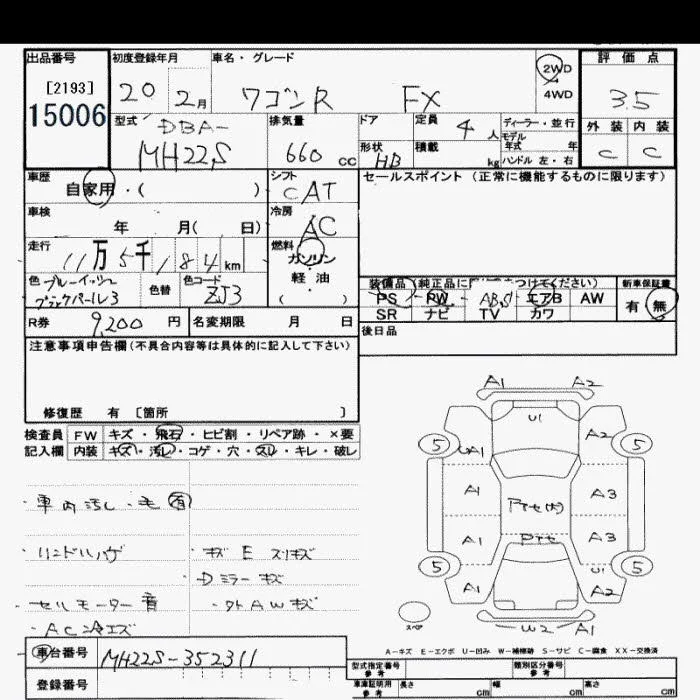 出品番号 初度登録年月 車名・グレード 評価点
[2193] 20 2月 ワゴンR FX 2WD 4WD 3.5
15006
型式 DBA- MH22S 排気量 660 cc ドア 形状 HB 定員 4人 積載 kg ディーラー・並行 モデル年式 年 ハンドル 左・右 外装 C 内装 C
車歴 自家用・( ) シフト CAT セールスポイント(正常に機能するものに限ります)
車検 年 月( 日) 冷房 AC
走行 11万5千184km 燃料 ガソリン・軽油 ( )
色 ブルーイッシュブラックパール3 色替 色コード ZJ3
装備品(純正品に つけてください) 新車保証書
PS PW ABS エアB AW 有 無
SR ナビ TV カワ
R券 9,200円 名変期限 月 日 後日品
注意事項申告欄(不具合内容等は具体的に記入して下さい)
修復歴 有 [箇所 ]
検査員 FW キズ・飛石・ヒビ割・リペア跡・×要
記入欄 内装 キズ・汚レ・コゲ・穴・スレ・キレ・破レ
・車内汚レ・毛有
・ハンドルハゲ ・キズEスリキズ
・Dミラーキズ
・セルモーター音 ・外AWキズ
・AC冷エズ
A1 A2
U1
5 A2 5
UA1
A1 A3
A1 A3
5 U1 5
A1 A2
スペア W2 A1
A-キズ E-エクボ U-凹み W-補修跡 S-サビ C-腐食 XX-交換済
車台番号 MH22S-352311
登録番号
型式指定番号 参考 類別区分番号 参考
車庫証明用 参考 長さ cm 幅 cm 高さ cm